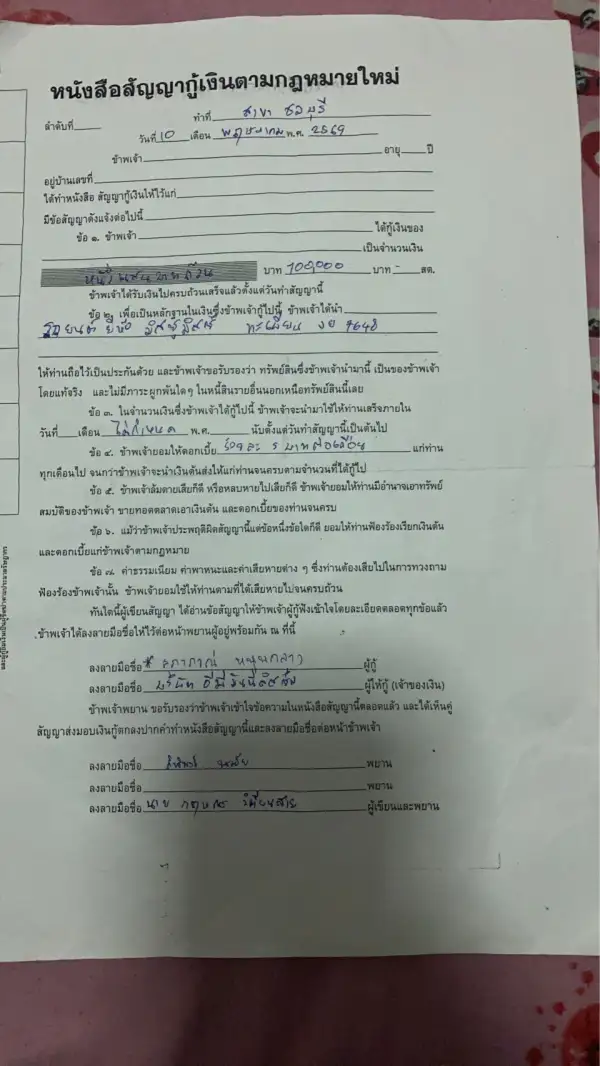 หนังสือสัญญากู้เงินตามกฎหมายใหม่
ลำดับที่ ทำที่ สาขา ชลบุรี
วันที่ 10 เดือน พฤษภาคม พ.ศ. 2569
ข้าพเจ้า อายุ ปี
อยู่บ้านเลขที่
ได้ทำหนังสือ สัญญากู้เงินให้ไว้แก่
มีข้อสัญญาดังแจ้งต่อไปนี้
ข้อ ๑. ข้าพเจ้า ได้กู้เงินของ
เป็นจำนวนเงิน
หนึ่งแสนบาทถ้วน บาท 100,000 บาท - สต.
ข้าพเจ้าได้รับเงินไปครบถ้วนเสร็จแล้วตั้งแต่วันทำสัญญานี้
ข้อ ๒. เพื่อเป็นหลักฐานในเงินซึ่งข้าพเจ้ากู้ไปนี้ ข้าพเจ้าได้นำ
รถยนต์ ยี่ห้อ มิตซูบิสชิ ทะเบียน งย 7648
ให้ท่านถือไว้เป็นประกันด้วย และข้าพเจ้าขอรับรองว่า ทรัพย์สินซึ่งข้าพเจ้านำมานี้ เป็นของข้าพเจ้า
โดยแท้จริง และไม่มีภาระผูกพันใดๆ ในหนี้สินรายอื่นนอกเหนือทรัพย์สินนี้เลย
ข้อ ๓. ในจำนวนเงินซึ่งข้าพเจ้าได้กู้ไปนี้ ข้าพเจ้าจะนำมาใช้ให้ท่านเสร็จภายใน
วันที่ เดือน ไม่กำหนด พ.ศ. นับตั้งแต่วันทำสัญญานี้เป็นต้นไป
ข้อ ๔. ข้าพเจ้ายอมให้ดอกเบี้ย ร้อยละ 5 บาทต่อเดือน แก่ท่าน
ทุกเดือนไป จนกว่าข้าพเจ้าจะนำเงินต้นส่งให้แก่ท่านจนครบตามจำนวนที่ได้กู้ไป
ข้อ ๕. ข้าพเจ้าล้มตายเสียก็ดี หรือหลบหายไปเสียก็ดี ข้าพเจ้ายอมให้ท่านมีอำนาจเอาทรัพย์
สมบัติของข้าพเจ้า ขายทอดตลาดเอาเงินต้น และดอกเบี้ยของท่านจนครบ
ข้อ ๖. แม้ว่าข้าพเจ้าประพฤติผิดสัญญานี้แต่ข้อหนึ่งข้อใดก็ดี ยอมให้ท่านฟ้องร้องเรียกเงินต้น
และดอกเบี้ยแก่ข้าพเจ้าตามกฎหมาย
ข้อ ๗. ค่าธรรมเนียม ค่าพาหนะและค่าเสียหายต่าง ๆ ซึ่งท่านต้องเสียไปในการทวงถาม
ฟ้องร้องข้าพเจ้านั้น ข้าพเจ้ายอมใช้ให้ท่านตามที่ได้เสียหายไปจนครบถ้วน
ทันใดนี้ผู้เขียนสัญญา ได้อ่านข้อสัญญาให้ข้าพเจ้าผู้กู้ฟังเข้าใจโดยละเอียดตลอดทุกข้อแล้ว
ข้าพเจ้าได้ลงลายมือชื่อให้ไว้ต่อหน้าพยานผู้อยู่พร้อมกัน ณ ที่นี้
ลงลายมือชื่อ ผู้กู้
ลงลายมือชื่อ บริษัท ผู้ให้กู้ (เจ้าของเงิน)
ข้าพเจ้าพยาน ขอรับรองว่าข้าพเจ้าเข้าใจข้อความในหนังสือสัญญานี้ตลอดแล้ว และได้เห็นคู่
สัญญาส่งมอบเงินกู้ตกลงปากคำทำหนังสือสัญญานี้และลงลายมือชื่อต่อหน้าข้าพเจ้า
ลงลายมือชื่อ พยาน
ลงลายมือชื่อ พยาน
ลงลายมือชื่อ นาย ผู้เขียนและพยาน